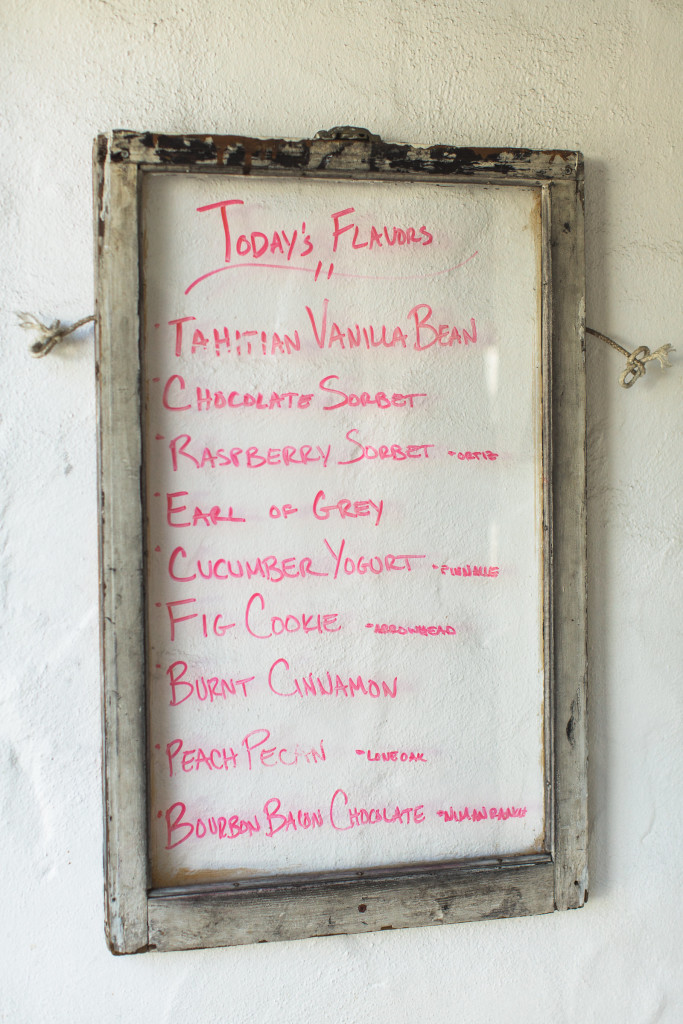 TODAY'S FLAVORS
TAHITIAN VANILLA BEAN
CHOCOLATE SORBET
RASPBERRY SORBET - ORTIZ
EARL OF GREY
CUCUMBER YOGURT - PINNACLE
FIG COOKIE - ARROWHEAD
BURNT CINNAMON
PEACH PECAN - LONEOAK
BOURBON BACON CHOCOLATE